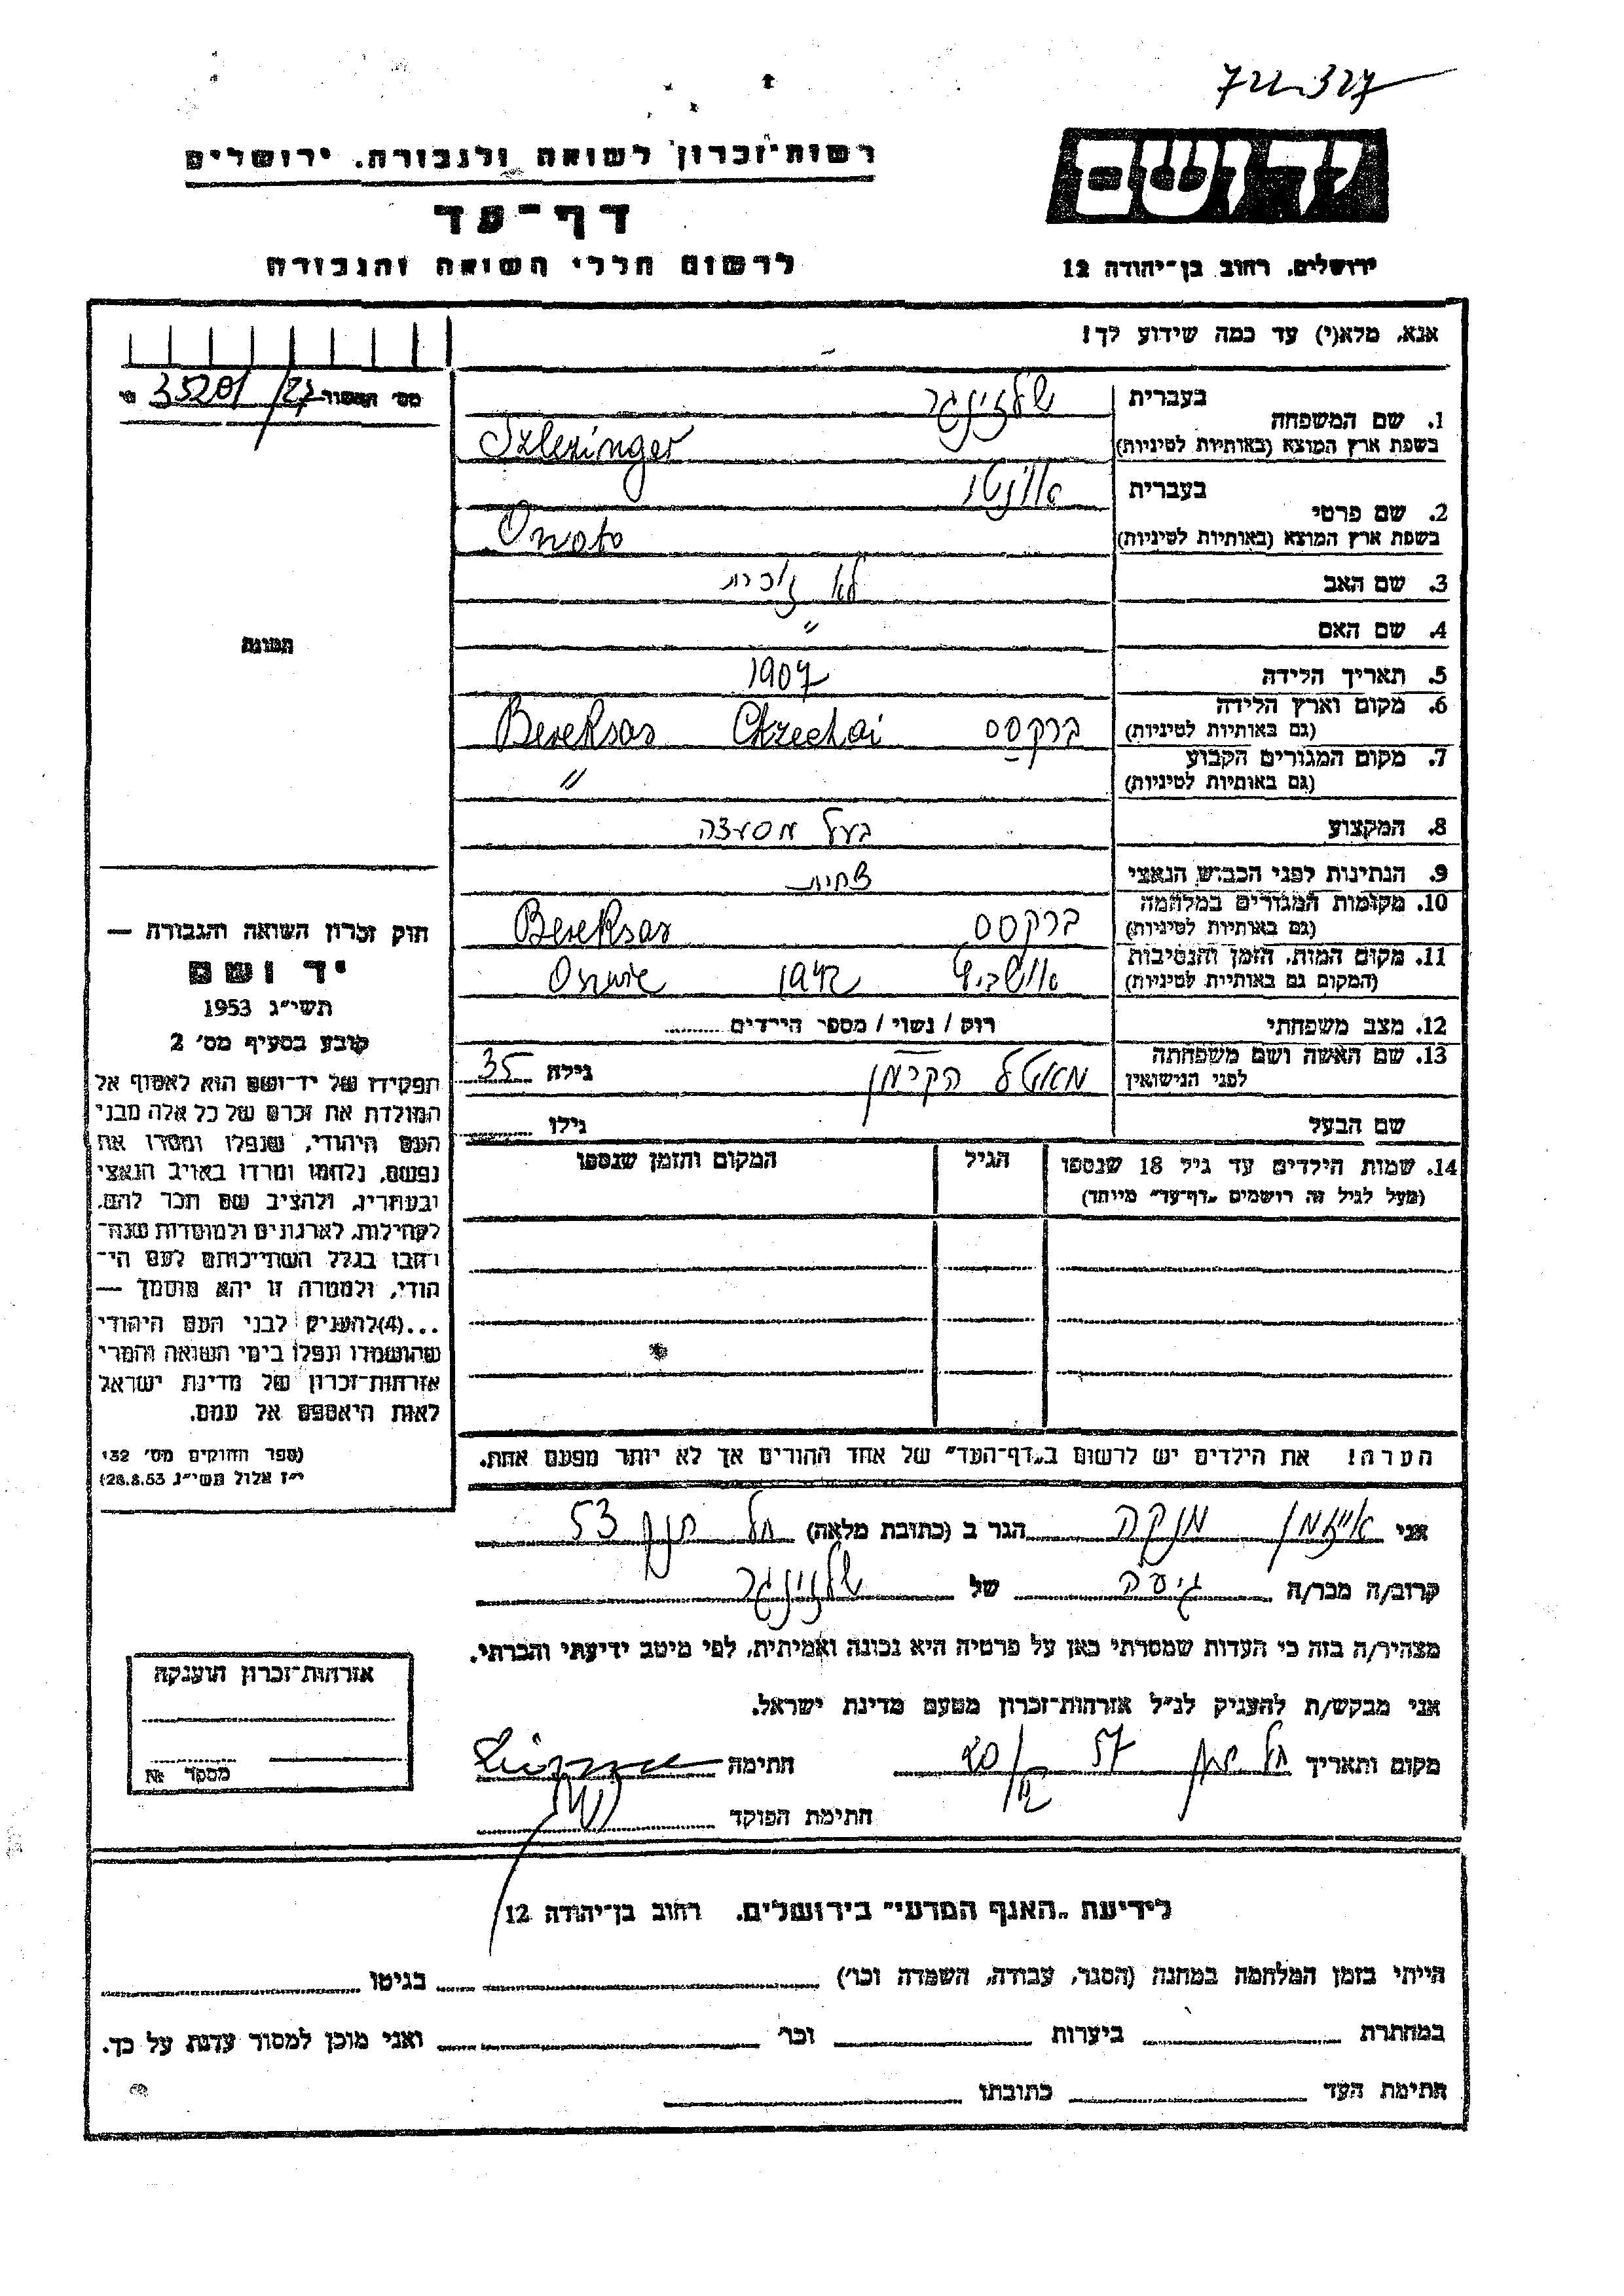 722.327
יד ושם
ירושלים, רחוב בן־יהודה 12
רשות־זכרון לשואה ולגבורה, ירושלים
דף־עד
לרשום חללי השואה והגבורה
אנא, מלא(י) עד כמה שידוע לך!
מס׳ 35201/27
1. שם המשפחה
בעברית שלזינגר
בשפת ארץ המוצא (באותיות לטיניות) Szlezinger
2. שם פרטי
בעברית
בשפת ארץ המוצא (באותיות לטיניות)
3. שם האב לא זוכרת
4. שם האם "
5. תאריך הלידה 1907
6. מקום וארץ הלידה
(גם באותיות לטיניות) ברקסס Bereksas
7. מקום המגורים הקבוע
(גם באותיות לטיניות) "
8. המקצוע בעל מסעדה
9. הנתינות לפני הכבוש הנאצי
10. מקומות המגורים במלחמה
(גם באותיות לטיניות) ברקסס Bereksas
11. מקום המות, הזמן והנסיבות
(המקום גם באותיות לטיניות) אושביץ 1942
12. מצב משפחתי רוק / נשוי / מספר הילדים
13. שם האשה ושם משפחתה
לפני הנישואין גילה 35
שם הבעל גילו
14. שמות הילדים עד גיל 18 שנספו הגיל המקום והזמן שנספו
(מעל לגיל זה רושמים „דף־עד" מיוחד)
הערה! את הילדים יש לרשום ב„דף־העד" של אחד ההורים אך לא יותר מפעם אחת.
תמונה
חוק זכרון השואה והגבורה —
יד ושם
תשי״ג 1953
קובע בסעיף מס׳ 2
תפקידו של יד־ושם הוא לאסוף אל
המולדת את זכרם של כל אלה מבני
העם היהודי, שנפלו ומסרו את
נפשם, נלחמו ומרדו באויב הנאצי
ובעוזריו, ולהציב שם וזכר להם,
לקהילות, לארגונים ולמוסדות שנח־
רבו בגלל השתייכותם לעם הי־
הודי, ולמטרה זו יהא מוסמך —
...(4) להעניק לבני העם היהודי
שהושמדו ונפלו בימי השואה והמרי
אזרחות־זכרון של מדינת ישראל
לאות היאספם אל עמם.
(ספר החוקים מס׳ 132
י״ז אלול תשי״ג 28.8.53)
אני אייזמן הגר ב (כתובת מלאה) 53
קרוב/ה מכר/ה גיסה של שלזינגר
מצהיר/ה בזה כי העדות שמסרתי כאן על פרטיה היא נכונה ואמיתית, לפי מיטב ידיעתי והכרתי.
אני מבקש/ת להעניק לנ״ל אזרחות־זכרון מטעם מדינת ישראל.
מקום ותאריך 20/ 57 חתימה
חתימת הפוקד
אזרחות־זכרון הוענקה
מספר №
לידיעת „האגף המדעי" בירושלים, רחוב בן־יהודה 12
הייתי בזמן המלחמה במחנה (הסגר, עבודה, השמדה וכו׳) בגיטו
במחתרת ביערות וכו׳ ואני מוכן למסור עדות על כך.
חתימת העד כתובתו